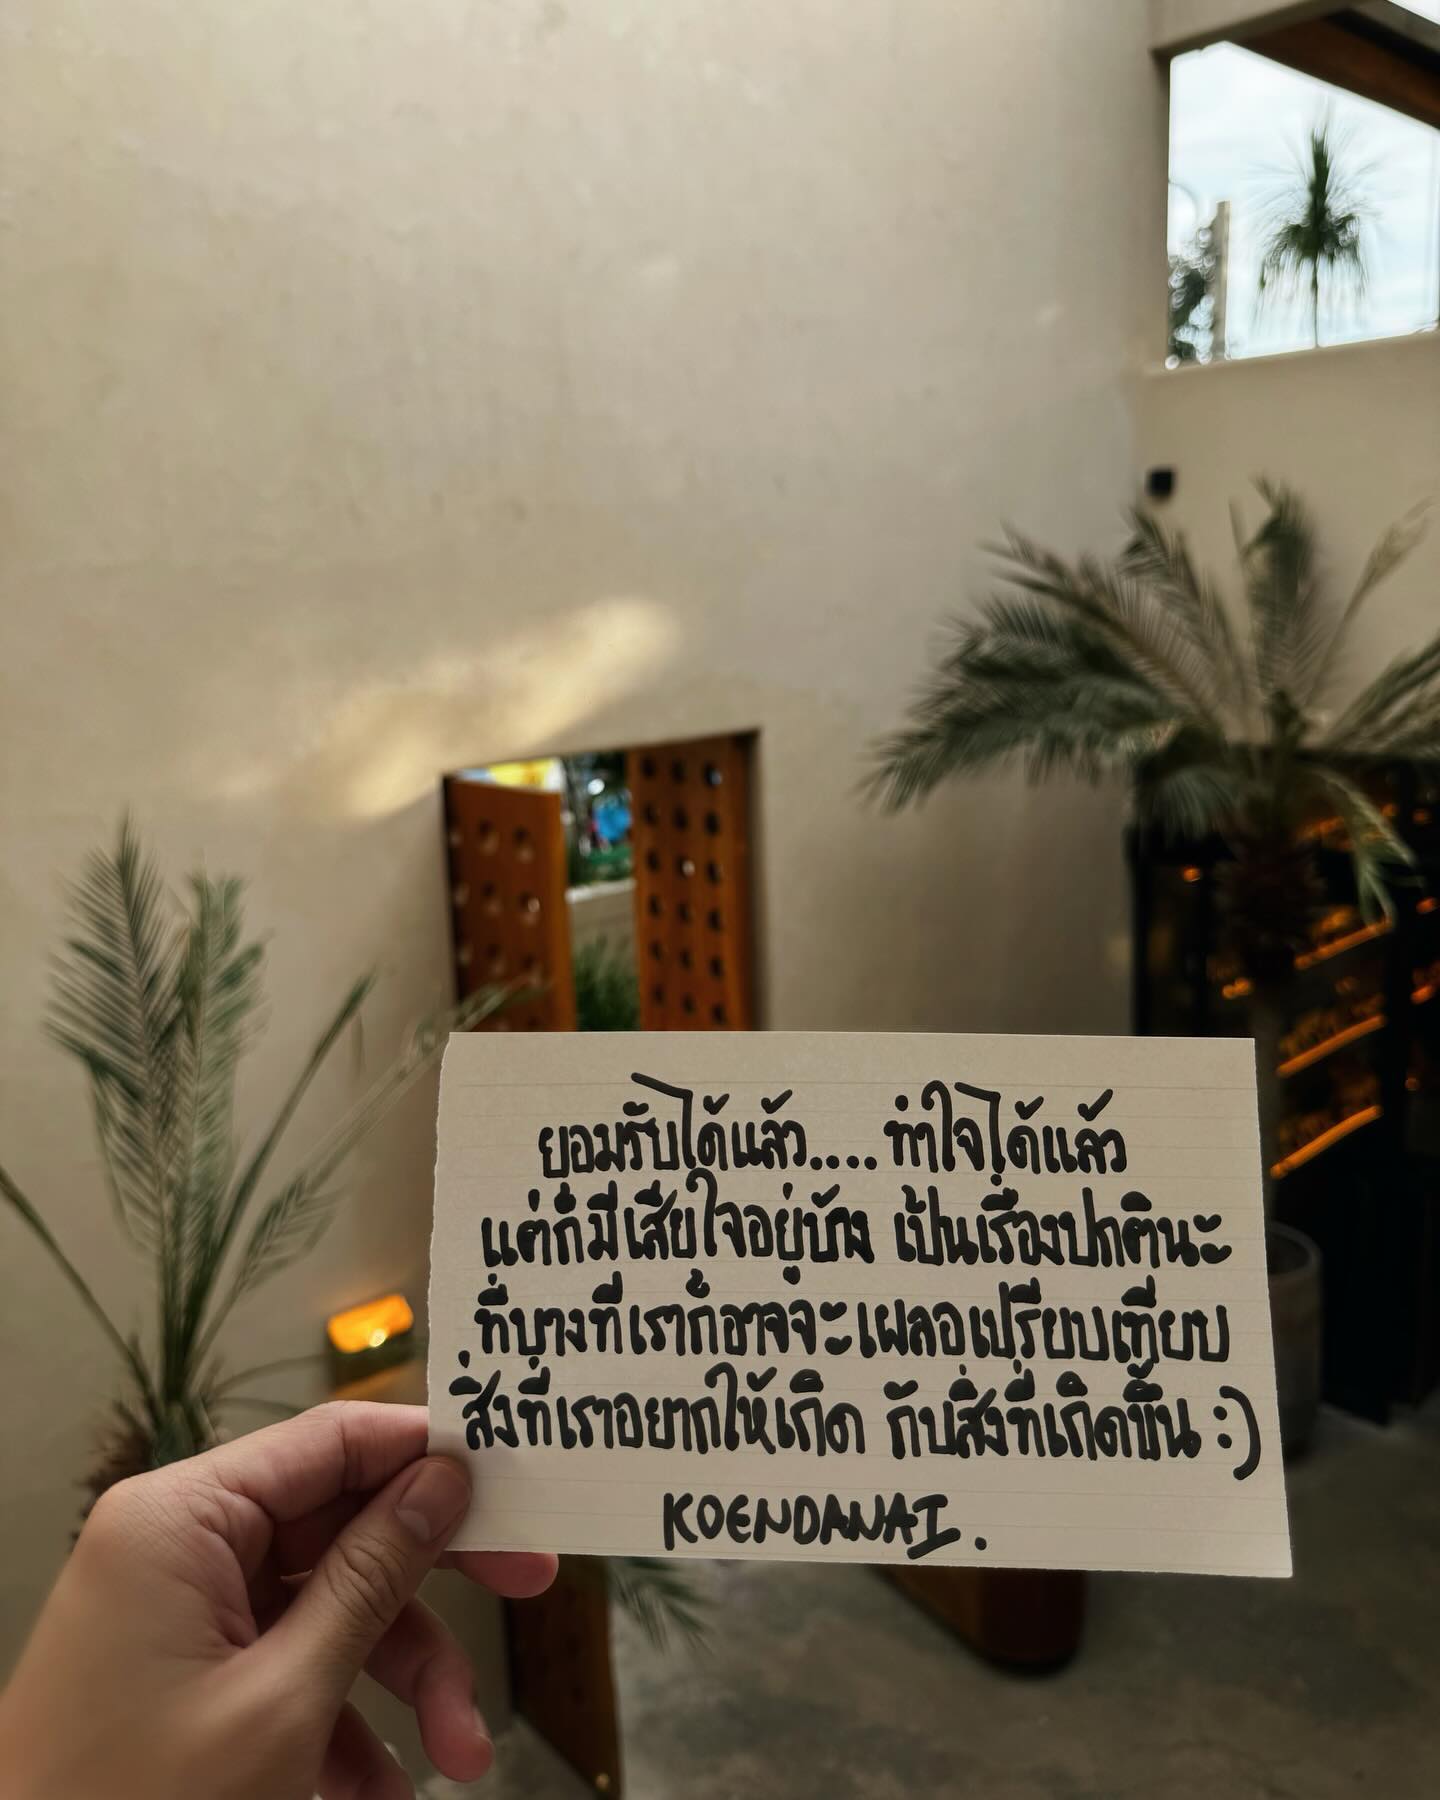 ยอมรับได้แล้ว.... ทำใจได้แล้ว
แต่ก็มีเสียใจอยู่บ้าง เป็นเรื่องปกตินะ
ที่บางทีเราก็อาจจะเผลอเปรียบเทียบ
สิ่งที่เราอยากให้เกิด กับสิ่งที่เกิดขึ้น :)
KOENDANAI.